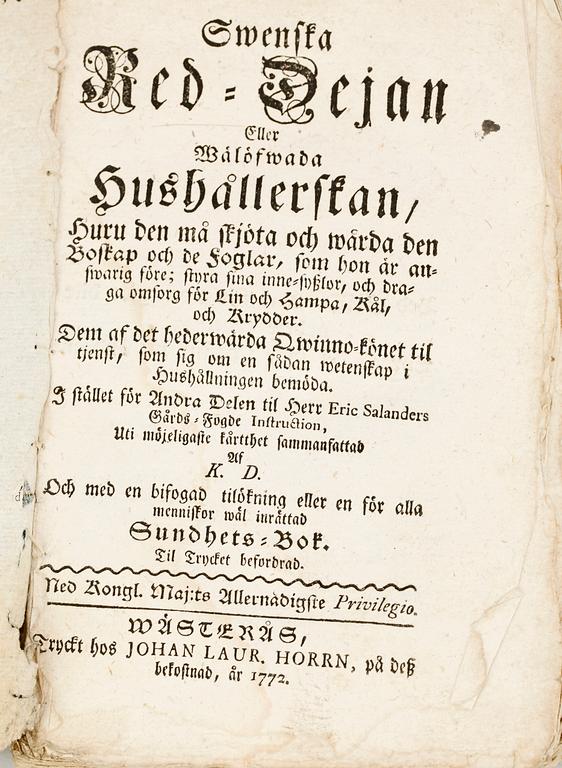 Swenska
Red-Dejan
Eller
Wälöfwada
Hushållerskan,
Huru den må skjöta och wårda den
Boskap och de Foglar, som hon är an-
swarig före; styra sina inne-sysslor, och dra-
ga omsorg för Lin och Hampa, Kål,
och Krydder.
Dem af det hederwärda Qwinno-könet til
tjenst, som sig om en sådan wetenskap i
Hushållningen bemöda.
I stället för Andra Delen til Herr Eric Salanders
Gårds-Fogde Instruction,
Uti möjeligaste kårtthet sammanfattad
Af
K. D.
Och med en bifogad tilökning eller en för alla
menniskor wäl inrättad
Sundhets-Bok.
Til Trycket befordrad.
Med Kongl. Maj:ts Allernådigste Privilegio.
WÄSTERÅS,
Tryckt hos JOHAN LAUR. HORRN, på deß
bekostnad, år 1772.